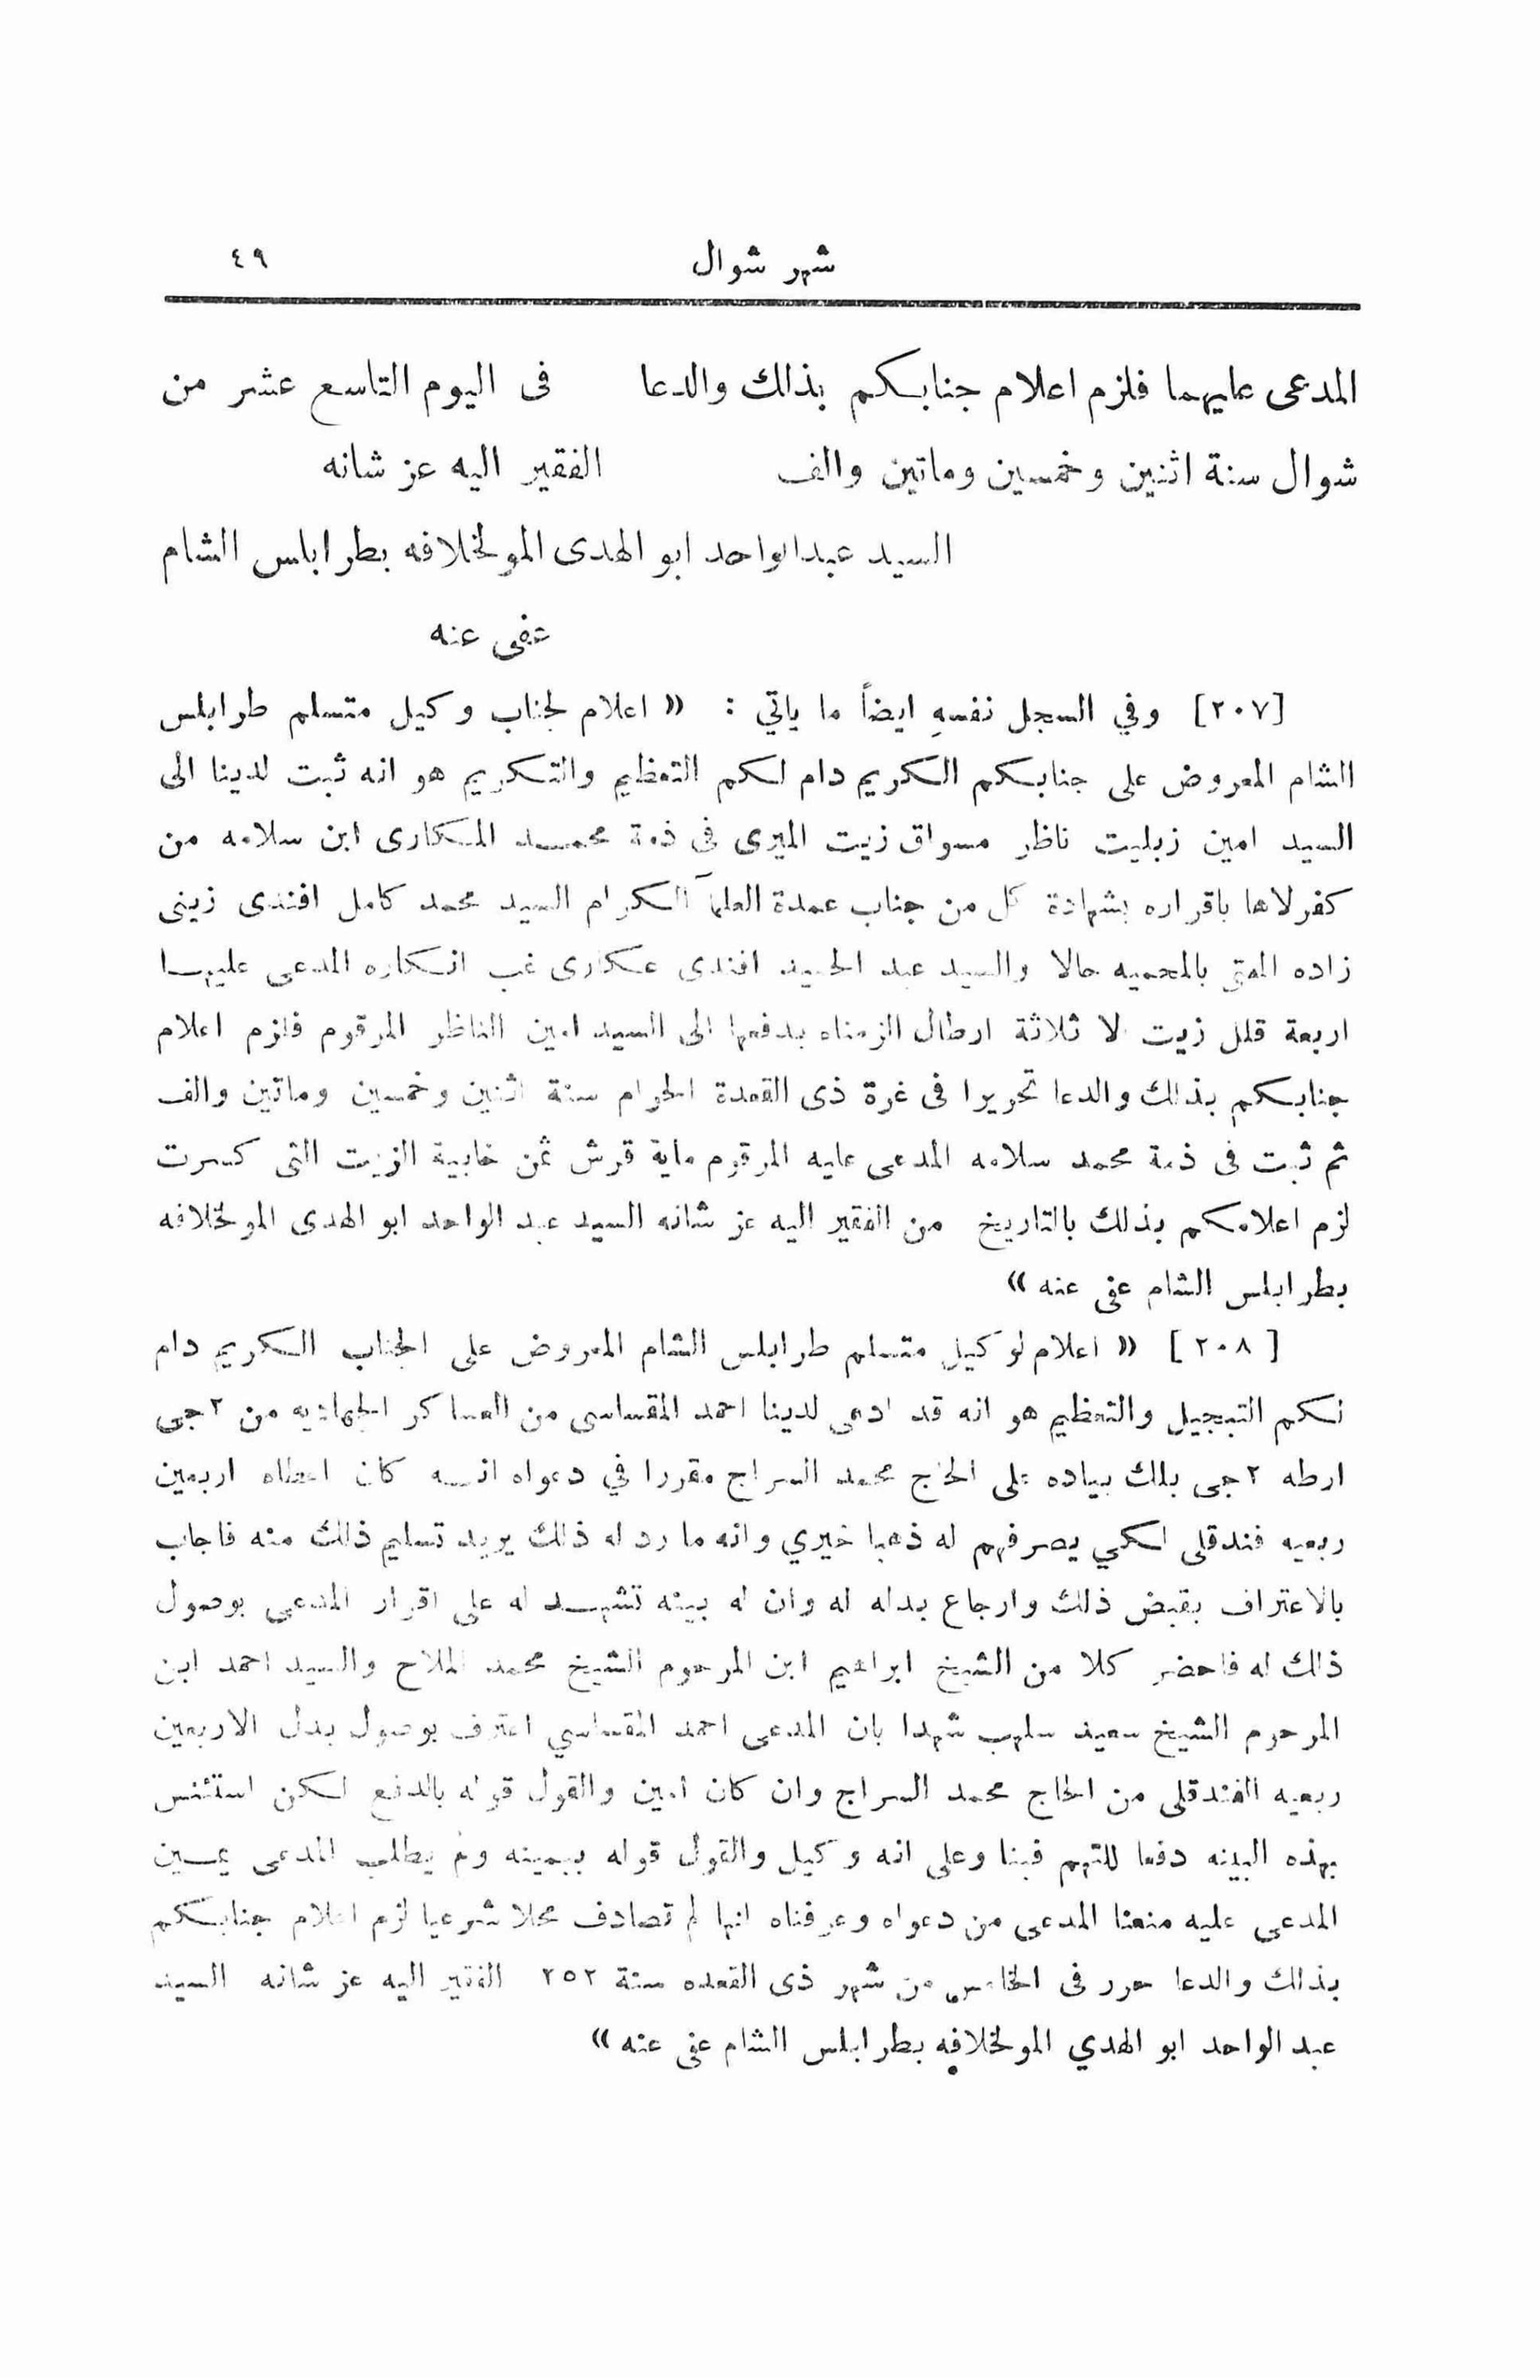 شهر شوال ٤٩
المدعى عليهما فلزم اعلام جنابكم بذلك والدعا فى اليوم التاسع عشر من
شوال سنة اثنين وخمسين وماتين والف الفقير اليه عز شانه
السيد عبدالواحد ابو الهدى المولخلافه بطرابلس الشام
عفى عنه
[٢٠٧] وفي السجل نفسهِ ايضاً ما ياتي : « اعلام لجناب وكيل متسلم طرابلس
الشام المعروض على جنابكم الكريم دام لكم التعظيم والتكريم هو انه ثبت لدينا الى
السيد امين زبليت ناظر مسواق زيت الميرى فى ذمة محمد المكارى ابن سلامه من
كفرلاها باقراره بشهادة كل من جناب عمدة العلمآ الكرام السيد محمد كامل افندى زينى
زاده المفتى بالمحميه حالا والسيد عبد الحميد افندى عكارى غب انكاره المدعى عليهما
اربعة قلل زيت الا ثلاثة ارطال الزمناه بدفعها الى السيد امين الناظر المرقوم فلزم اعلام
جنابكم بذلك والدعا تحريرا فى غرة ذى القعدة الحرام سنة اثنين وخمسين وماتين والف
ثم ثبت فى ذمة محمد سلامه المدعى عليه المرقوم ماية قرش ثمن خابية الزيت التى كسرت
لزم اعلامكم بذلك بالتاريخ من الفقير اليه عز شانه السيد عبد الواحد ابو الهدى المولخلافه
بطرابلس الشام عفى عنه »
[ ٢٠٨ ] « اعلام لوكيل متسلم طرابلس الشام المعروض على الجناب الكريم دام
لكم التبجيل والتعظيم هو انه قد ادعى لدينا احمد المقساسى من العساكر الجهاديه من ٢ جى
ارطه ٢ جى بلك بياده على الحاج محمد السراج مقررا في دعواه انه كان اعطاه اربعين
ربعيه فندقلى لكي يصرفهم له ذهبا خيري وانه ما رد له ذلك يريد تسليم ذلك منه فاجاب
بالاعتراف بقبض ذلك وارجاع بداله له وان له بينه تشهد له على اقرار المدعى بوصول
ذلك له فاحضر كلا من الشيخ ابراهيم ابن المرحوم الشيخ محمد الملاح والسيد احمد ابن
المرحوم الشيخ سعيد سلهب شهدا بان المدعى احمد المقساسي اعترف بوصول بدل الاربعين
ربعيه الفندقلى من الحاج محمد السراج وان كان امين والقول قوله بالدفع لكن استئنس
بهذه البينه دفعا للتهم فبنا وعلى انه وكيل والقول قوله بيمينه ولم يطلب المدعى يمين
المدعى عليه منعنا المدعى من دعواه وعرفناه انها لم تصادف محلا شرعيا لزم اعلام جنابكم
بذلك والدعا حرر فى الخامس من شهر ذى القعده سنة ٢٥٢ الفقير اليه عز شانه السيد
عبد الواحد ابو الهدي المولخلافه بطرابلس الشام عفى عنه »